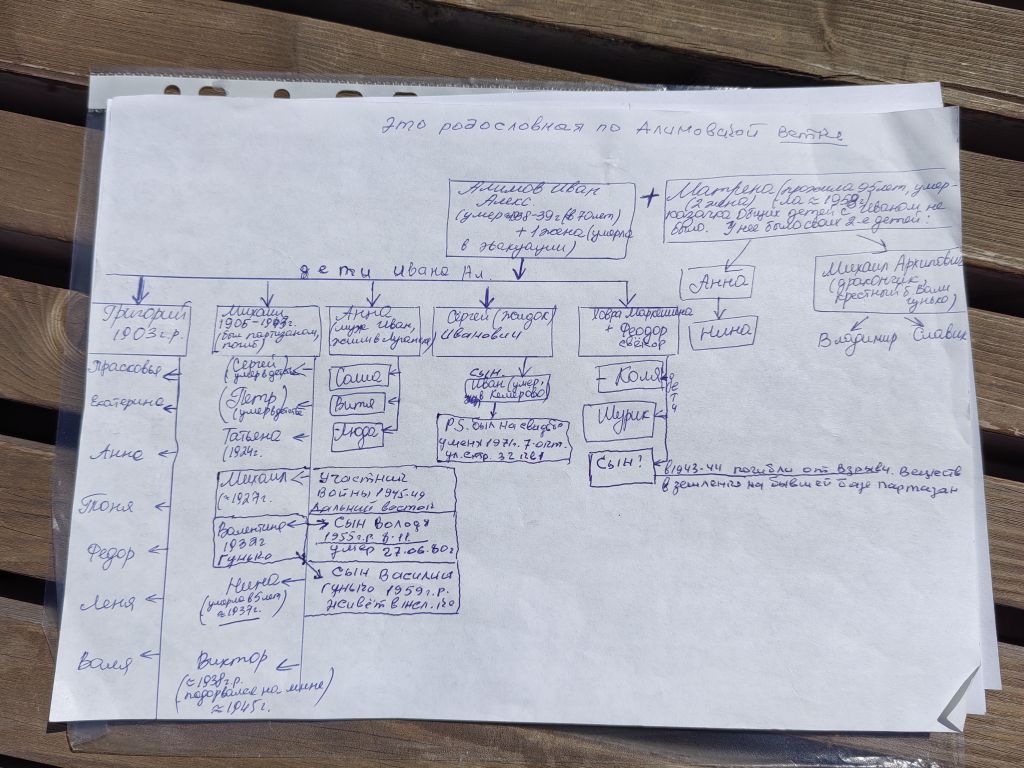 Это родословная по Алимовской ветке
Алимов Иван
Алекс.
(умер ≈38-39г (в 70лет)
+ 1 жена (умерла
в эвакуации)
+
Матрена (прожила 95 лет, умер-
(2 жена) ла ≈ 1959г)
казачка Общих детей с Иваном не
было. У нее было своих 2-е детей:
Анна
Нина
Михаил Архипович
(
крестный б Вали
Гунько)
Владимир Славик
дети Ивана Ал.
Григорий
1903г.р.
Прасковья
Екатерина
Анна
Тоня
Федор
Леня
Валя
Михаил
1905-1943г.
(был партизаном,
погиб)
(Сергей
(умер в дет
(Петр)
(умер в дет
Татьяна
(1924г.
Михаил
(≈1927г.
Участник
Войны 1945-49
Дальний восток
Валентина
1932г
Гунько
Сын Володя
1955г.р. 8.11
умер 27.06.80г
Сын Василий
Гунько 1959г.р.
живёт в
Нина
(умерла в 5 лет)
≈1937г.
Виктор
(≈1938г.р.
подорвался на мине
≈1945г.
Анна
(муж Иван,
жили в Луганске)
Саша
Витя
Люда
Сергей (Жидок)
Иванович
сын.
Иван (умер,
в Кемерово)
P.S. был на свадьбе
у меня 1971г. 7.
ул. стр. 32
+ Федор
Дети
- Коля
Шурик
Сын?
в 1943-44 погибли от взрывч. веществ
в землянке на бывшей базе партизан